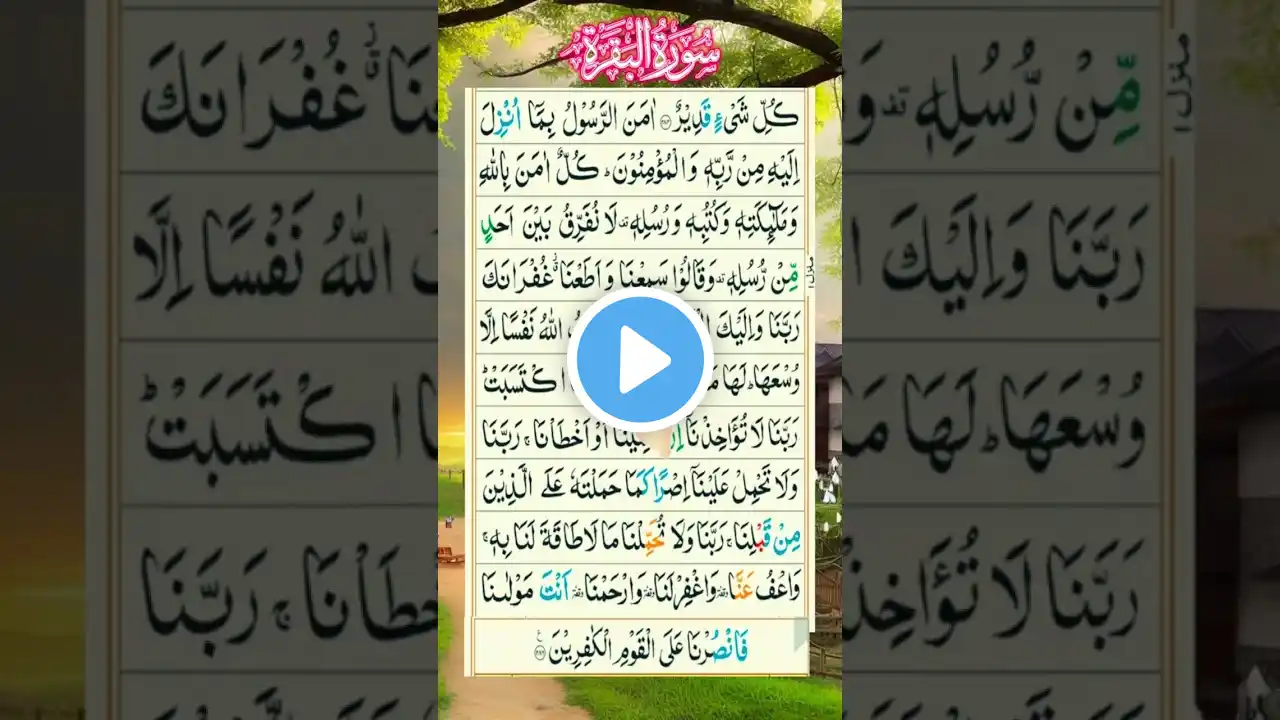 سُوْرَةُ الْبَقَرَةِ
كُلِّ شَیْءٍ قَدِیْرٌ ۝۲۸۴ اٰمَنَ الرَّسُوْلُ بِمَاۤ اُنْزِلَ
اِلَیْهِ مِنْ رَّبِّهٖ وَالْمُؤْمِنُوْنَ ؕ كُلٌّ اٰمَنَ بِاللّٰهِ
وَمَلٰٓئِكَتِهٖ وَكُتُبِهٖ وَرُسُلِهٖ لَا نُفَرِّقُ بَیْنَ اَحَدٍ
مِّنْ رُّسُلِهٖ وَقَالُوْا سَمِعْنَا وَاَطَعْنَا غُفْرَانَكَ
رَبَّنَا وَاِلَیْكَ اللّٰهُ نَفْسًا اِلَّا
وُسْعَهَا ؕ لَهَا اكْتَسَبَتْ ؕ
رَبَّنَا لَا تُؤَاخِذْنَاۤ اَوْ اَخْطَاْنَا ۚ رَبَّنَا
وَلَا تَحْمِلْ عَلَیْنَاۤ اِصْرًا كَمَا حَمَلْتَهٗ عَلَی الَّذِیْنَ
مِنْ قَبْلِنَا ۚ رَبَّنَا وَلَا تُحَمِّلْنَا مَا لَا طَاقَةَ لَنَا بِهٖ ۚ
وَاعْفُ عَنَّا وَاغْفِرْ لَنَا وَارْحَمْنَا اَنْتَ مَوْلٰىنَا
فَانْصُرْنَا عَلَی الْقَوْمِ الْكٰفِرِیْنَ ۝۲۸۶